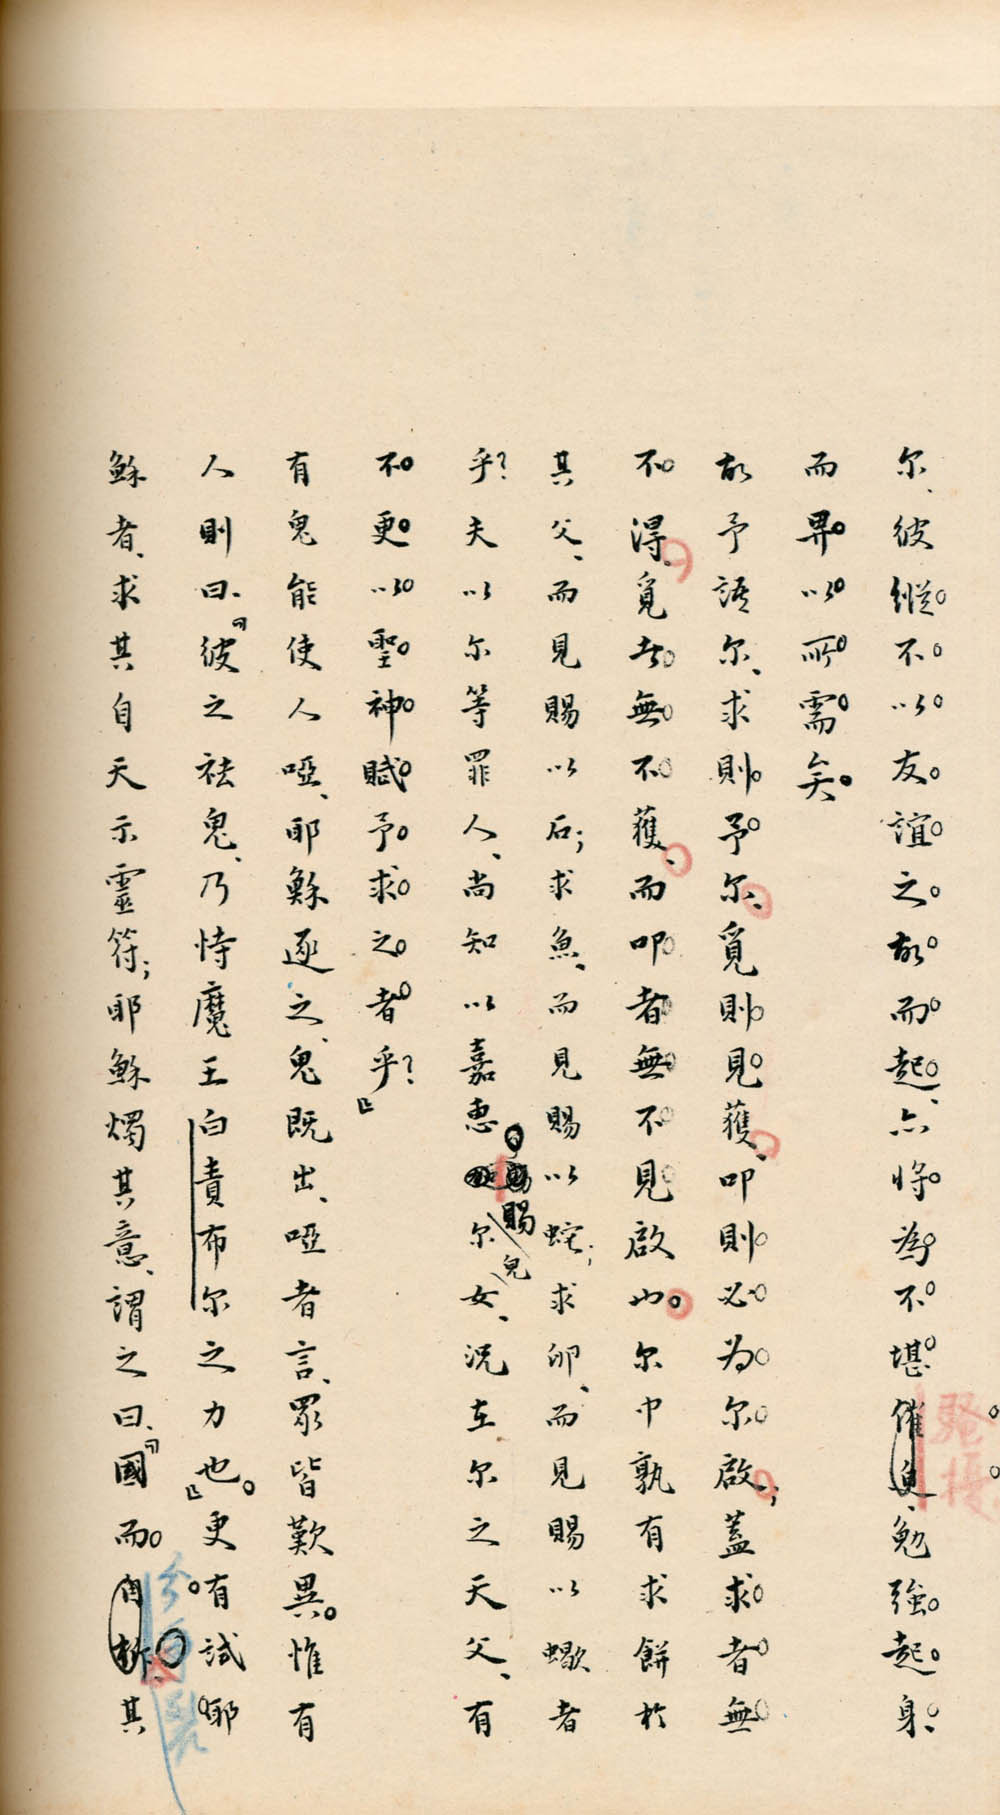 尔、彼縱不以友誼之故而起、亦將為不堪催迫、勉強起身、
騷擾
而畀以所需矣。
故予語尔、求則予尔、覓則見獲、叩則必為尔啟；蓋求者無
不得、覓者無不獲、而叩者無不見啟也。尔中孰有求餅於
其父、而見賜以石；求魚、而見賜以蛇；求卵、而見賜以蠍者
乎？夫以尔等罪人、尚知以嘉惠賜尔兒女、況在尔之天父、有
不更以聖神賦予求之者乎？』
有鬼能使人啞、耶穌逐之、鬼既出、啞者言、眾皆歎異。惟有
人則曰、『彼之祛鬼、乃恃魔王白責布尔之力也。』更有試耶
穌者、求其自天示靈符；耶穌燭其意、謂之曰、『國而自坼、其
分裂